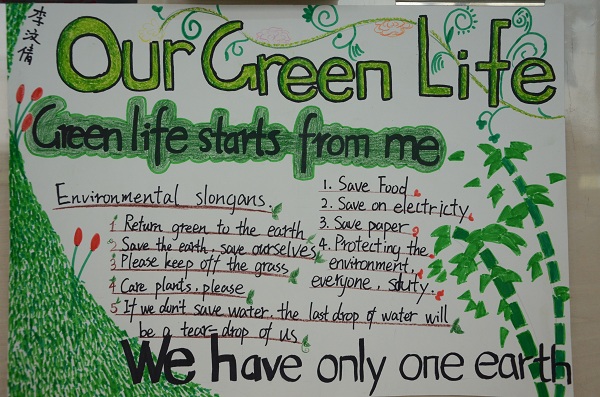 李文倩
Our Green Life
Green life starts from me
Environmental slongans.
1 Return green to the earth
2 Save the earth, save ourselves
3 Please keep off the grass
4 Care plants, please
5 If we don't save water, the last drop of water will
be a tear-drop of us
1. Save Food
2. Save on electricty
3. Save paper
4. Protecting the
environment,
everyone, s duty.
We have only one earth